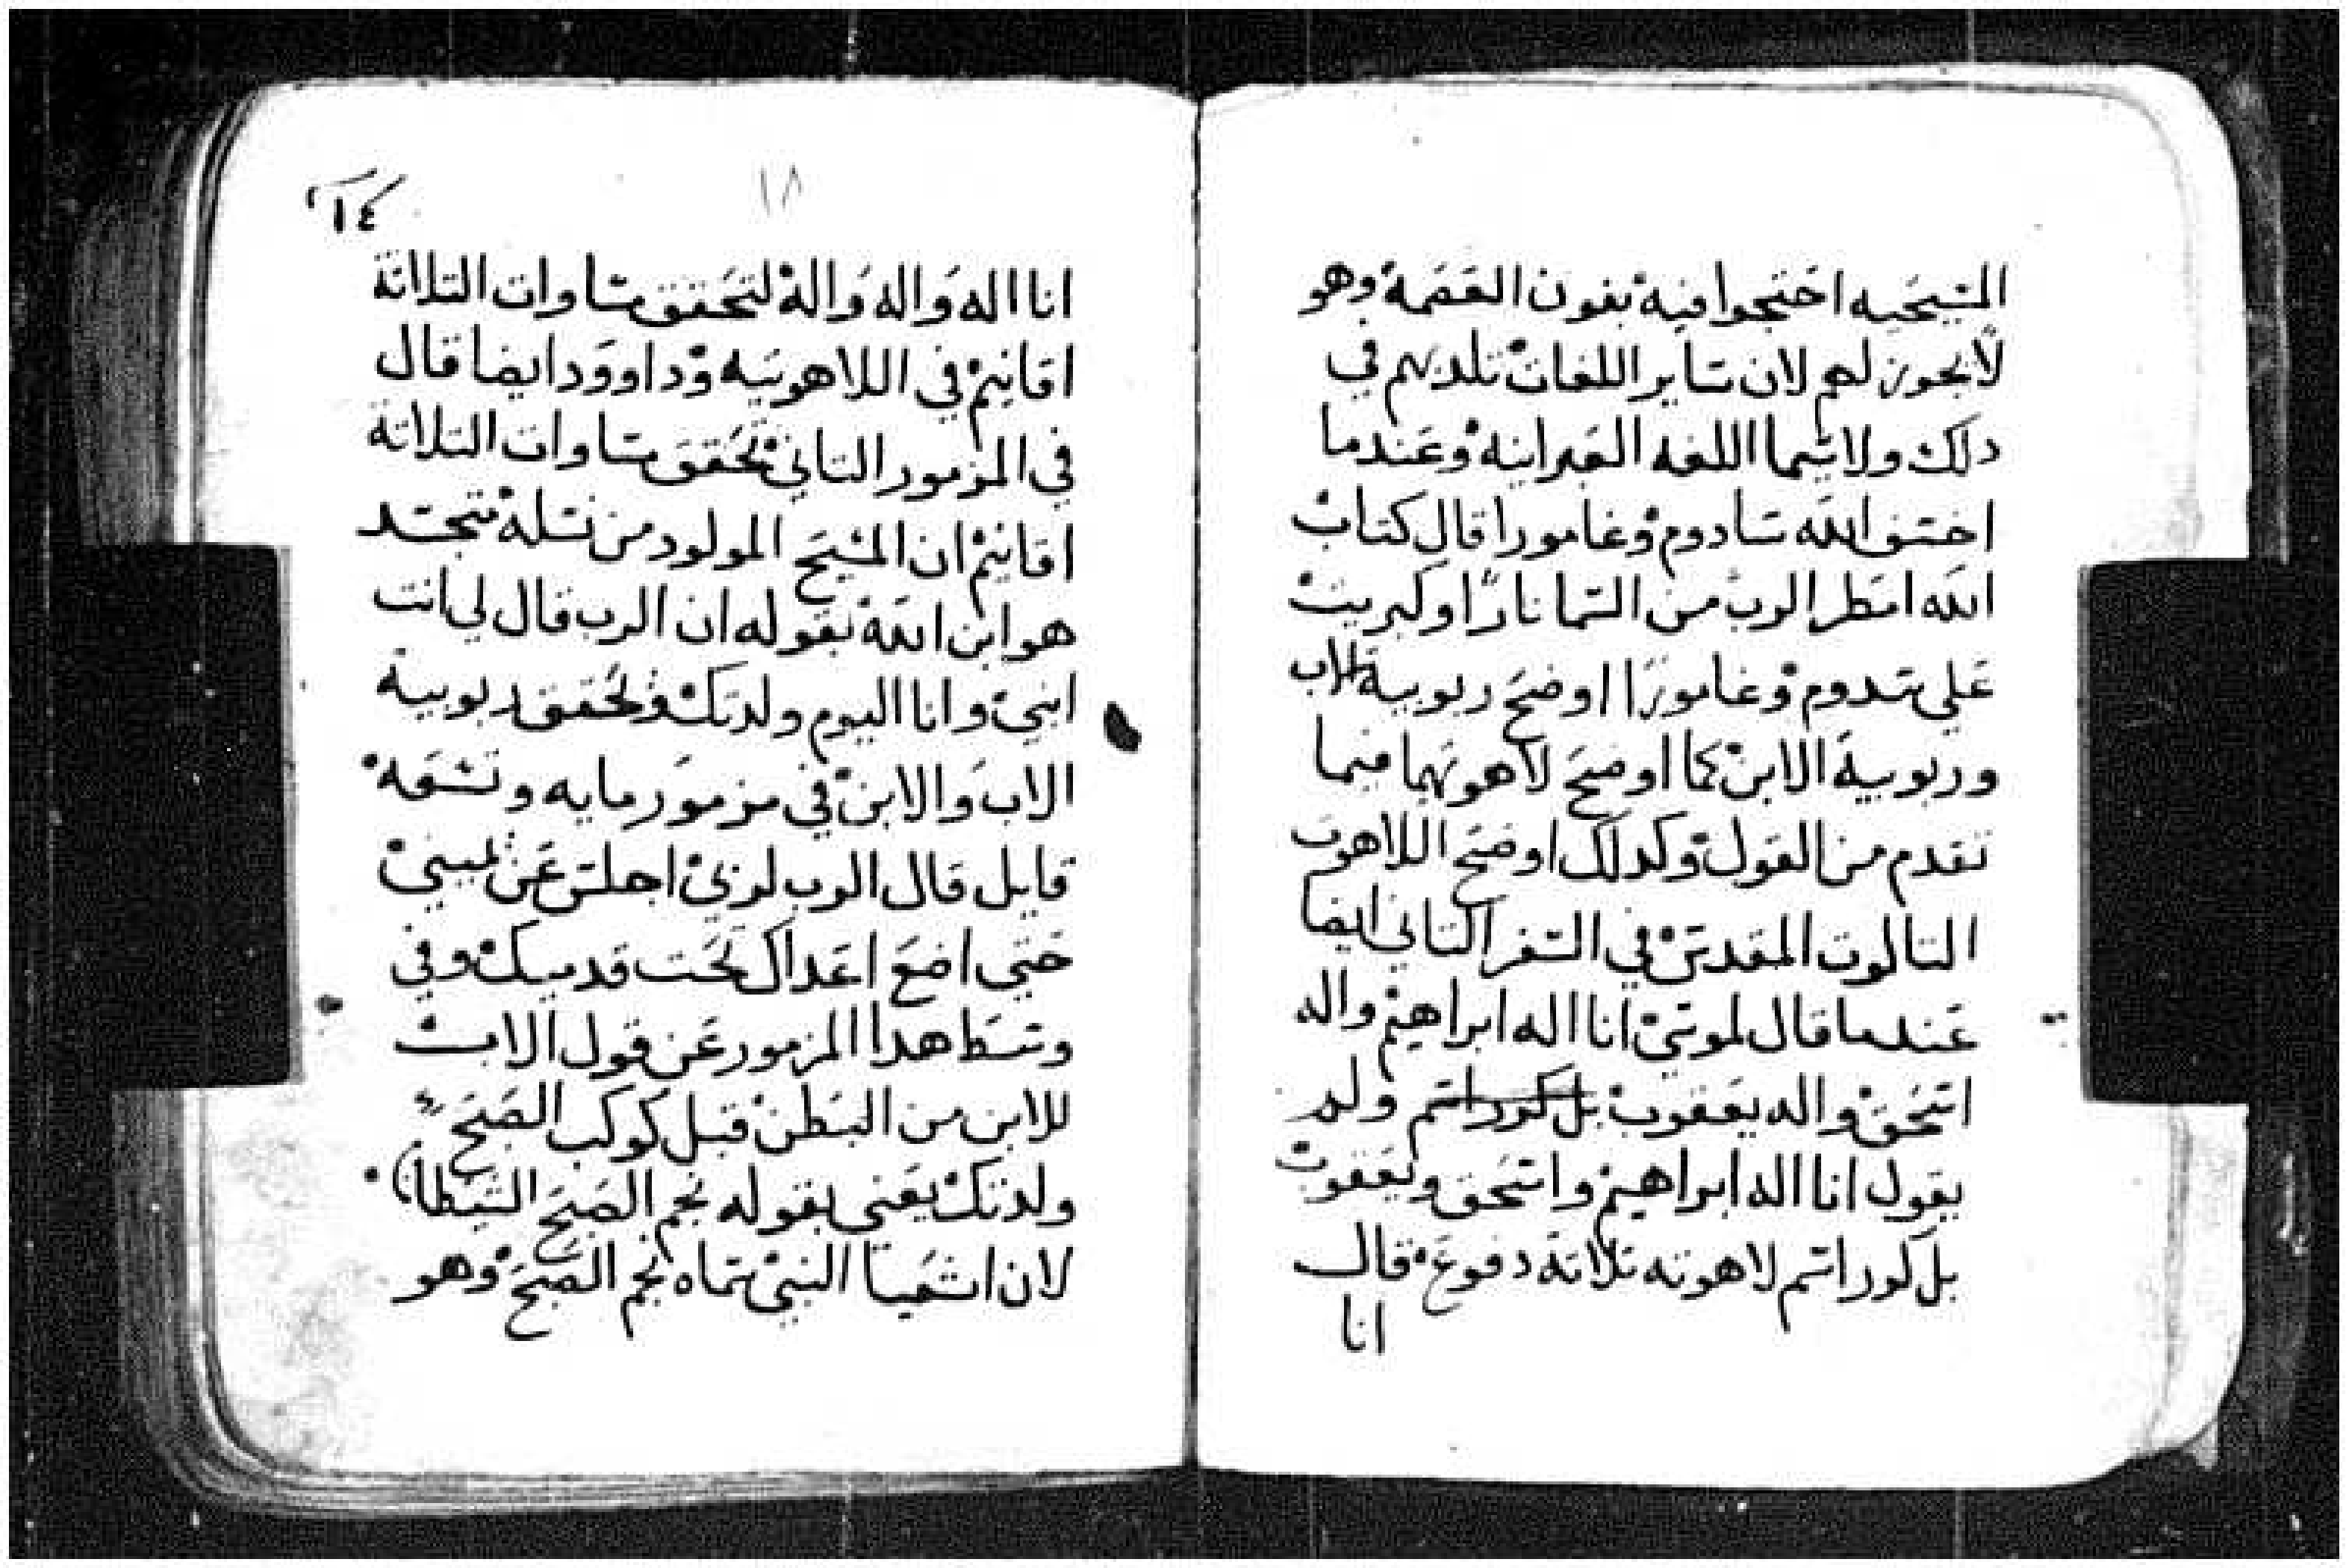 المسيحيه احتجوا فيه بنون العضمة وهو
لا يجوز لهم لان ساير اللغات تلديهم في
دلك ولا سيما اللغه العبرانيه وعندما
اختسف الله سادوم وغامورا قال كتاب
الله امطر الرب من السما نارًا وكبريت
علي سدوم وغامورًا اوضح ربوبية الاب
وربوبية الابن كما اوضح لاهوتهما فيما
تقدم من القول وكدلك اوضح اللاهوت
التالوت المقدس في السفر التاني ايضا
عندما قال لموسي انا اله ابراهيم واله
اسحق واله يعقوب بل كرر اسم ولم
يقول انا اله ابراهيم واسحق ويعقوب
بل كورر اسم لاهوته تلاتة دفوع قال
انا
١٨
١٤
انا اله واله واله لتحقق مساوات التلاتة
اقانيم في اللاهوتيه وداوود ايضا قال
في المزمور التاني تحقق مساوات التلاتة
اقانيم ان المسيح المولود من نسله متجسد
هو ابن الله بقوله ان الرب قال لي انت
ابني وانا اليوم ولدتك وتحقق ربوبية
الاب والابن في مزمور مايه وتسعه
قايل قال الرب لربي اجلس عن يميني
حتي اضع اعداك تحت قدميك وفي
وسط هدا المزمور عن قول الاب
للابن من البطن قبل كوكب الصبح
ولدتك يعني بقوله نجم الصبح الشيطان
لان اشعيا النبي سماه نجم الصبح وهو